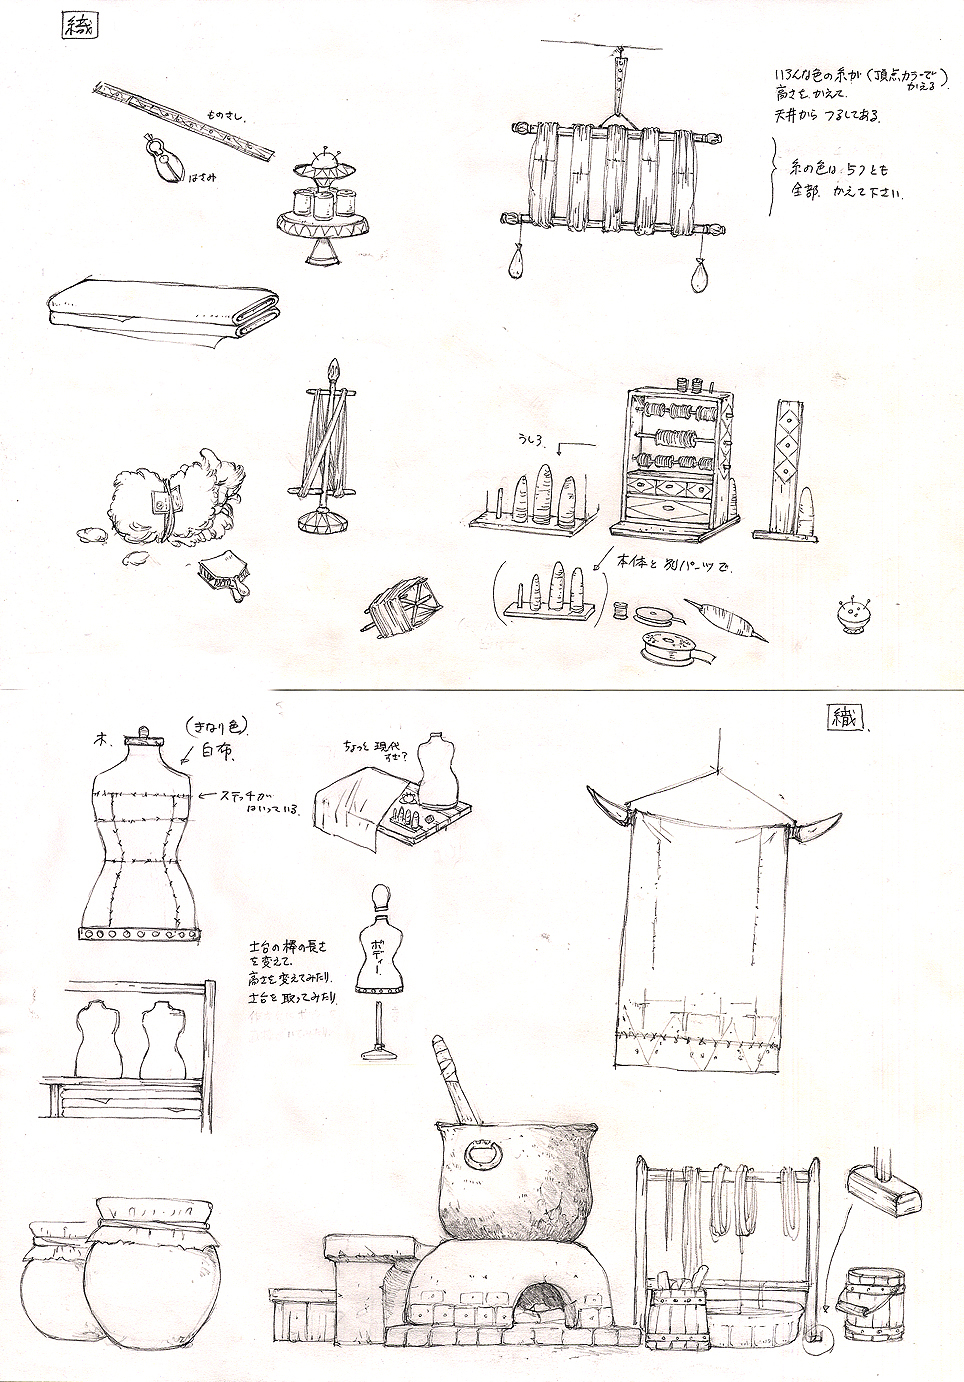 織
ものさし.
はさみ
いろんな色の糸が(頂点カラーで
かえる)
高さをかえて.
天井から つるしてある.
糸の色は 5つとも
全部. かえて下さい.
うしろ.
本体と 別パーツで.
織.
木.
(きなり色)
白布.
ステッチが
はいっている.
ちょっと 現代
すぎ?
ボディー.
土台の棒の長さ
を変えて.
高さを変えてみたり.
土台を 取ってみたり.